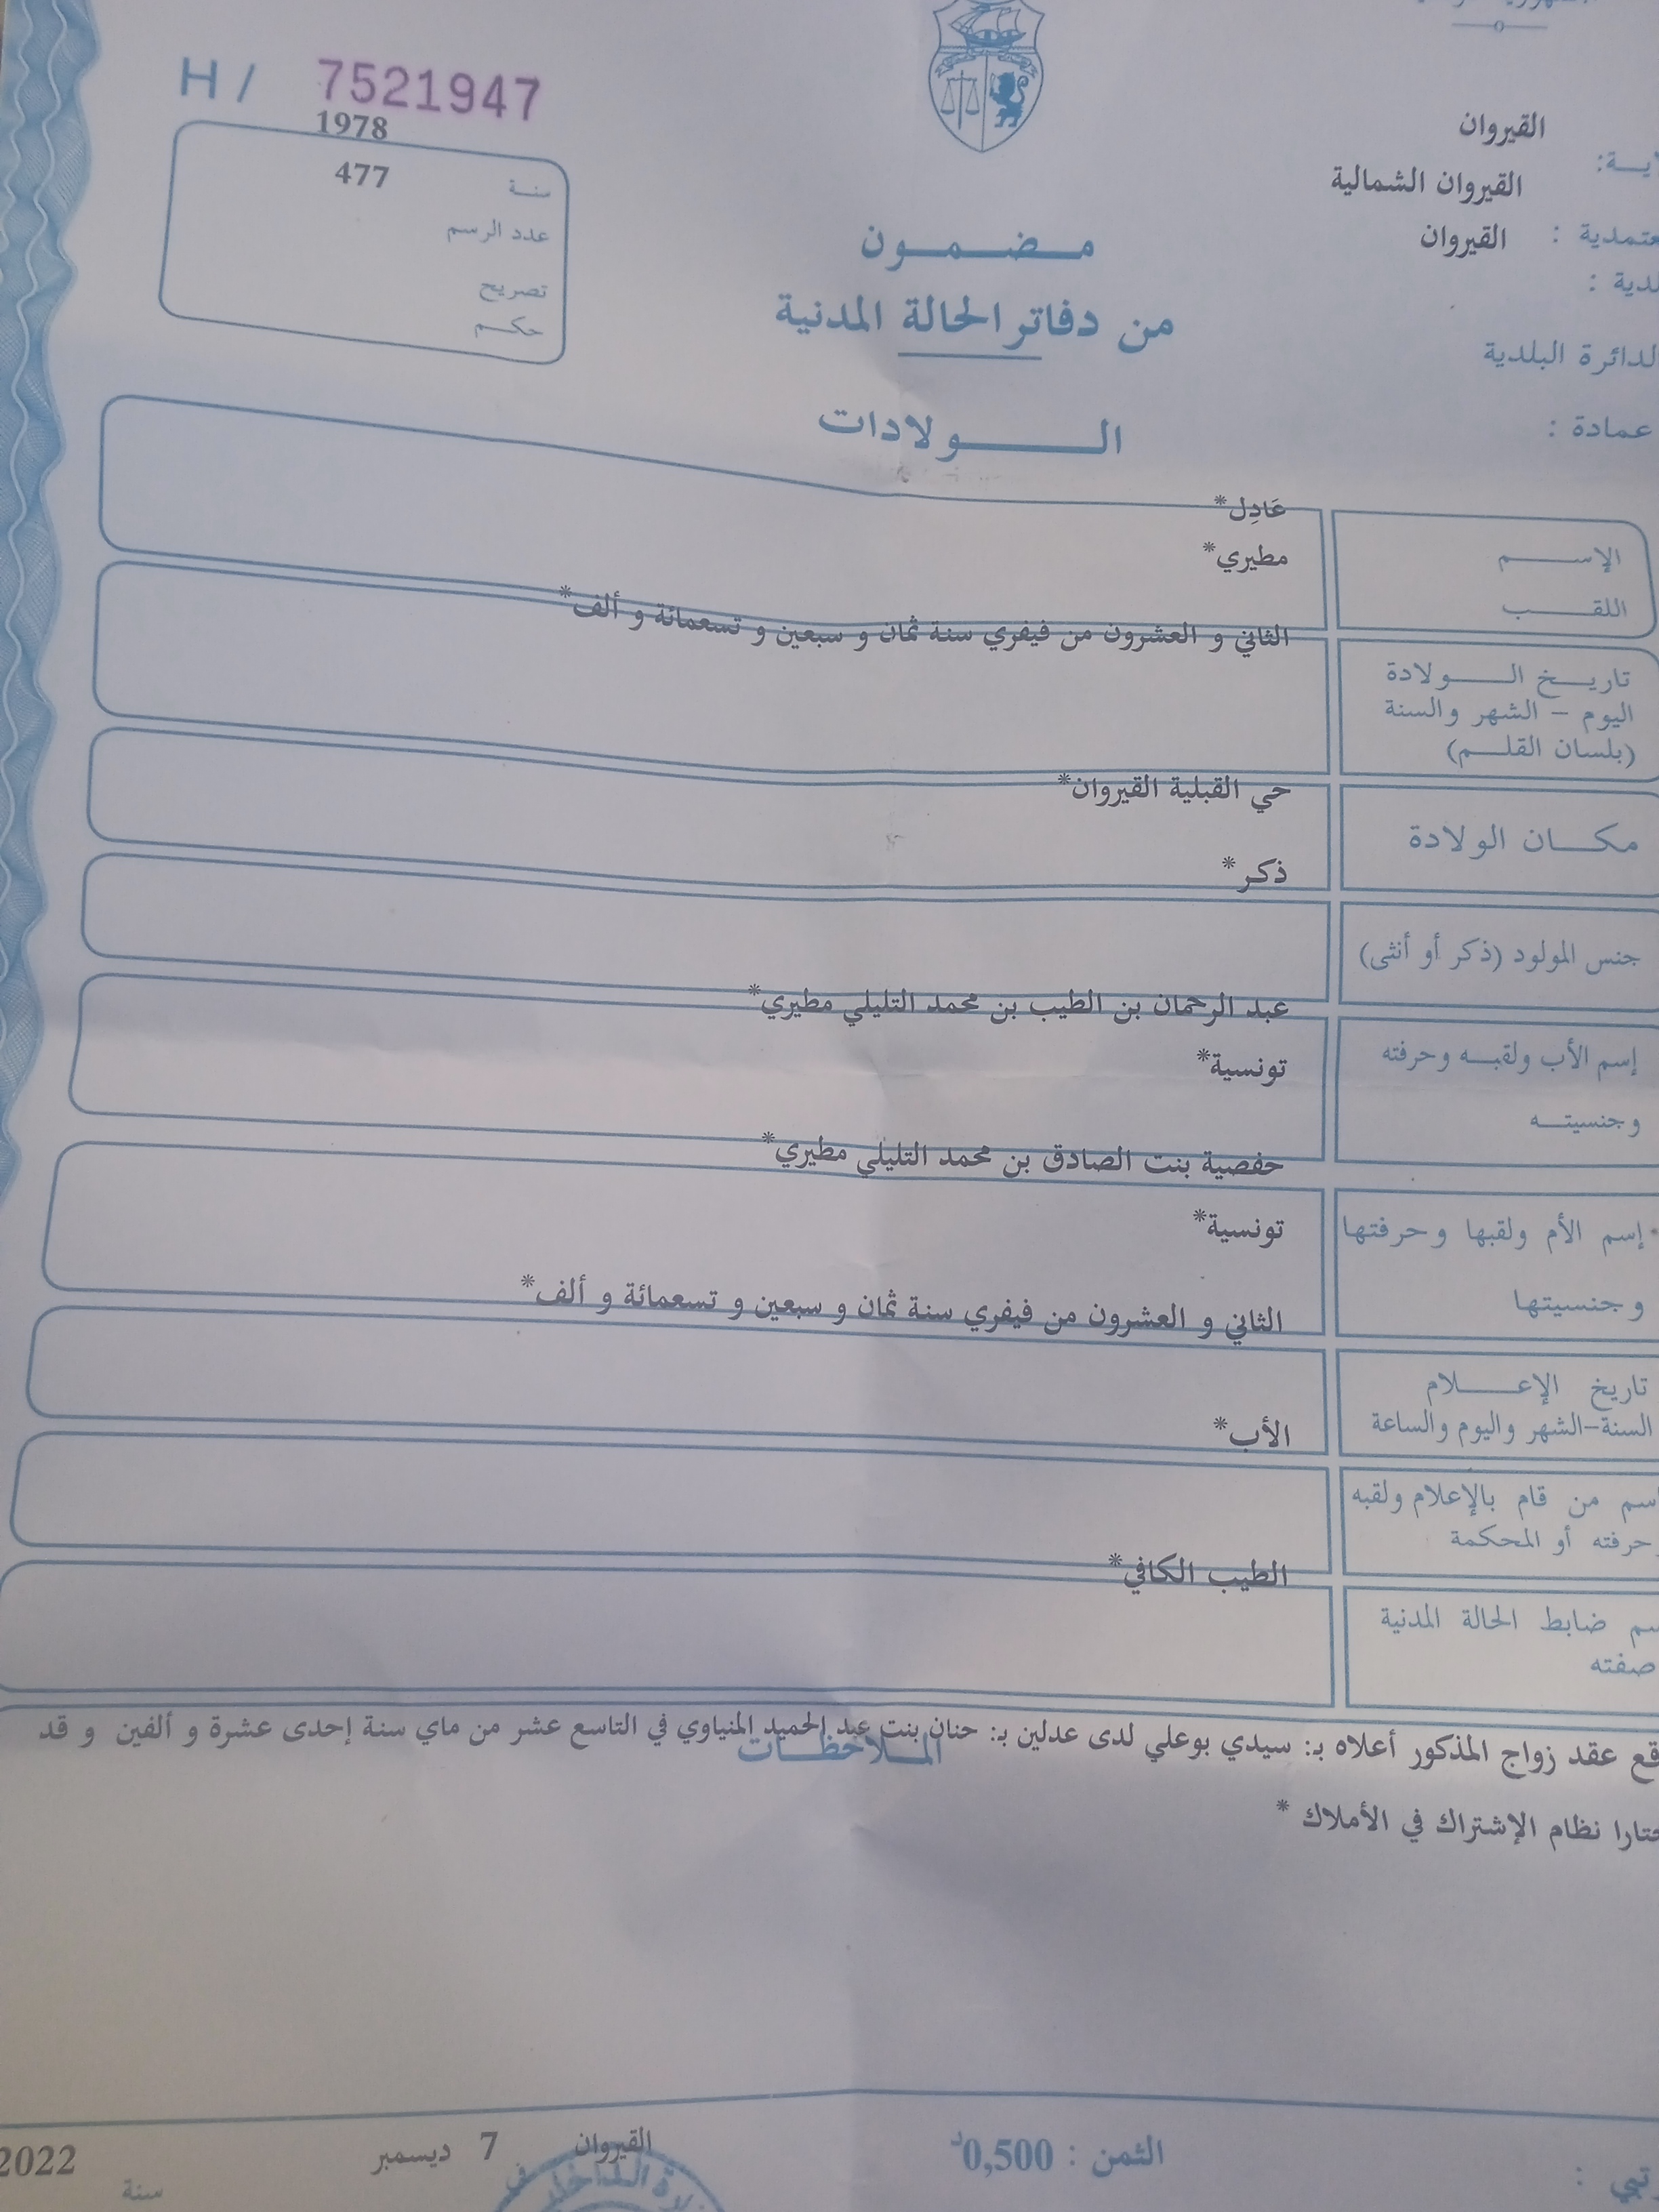 H / 7521947
1978
سنة 477
عدد الرسم
تصريح
حكم
القيروان
القيروان الشمالية
القيروان
الدائرة البلدية
عمادة :
مضمون
من دفاتر الحالة المدنية
الولادات
عَادِل*
الإسم
مطيري*
اللقب
الثاني و العشرون من فيفري سنة ثمان و سبعين و تسعمائة و ألف*
تاريخ الولادة
اليوم – الشهر والسنة
(بلسان القلم)
حي القبلية القيروان*
مكان الولادة
ذكر*
جنس المولود (ذكر أو أنثى)
عبد الرحمان بن الطيب بن محمد التليلي مطيري*
إسم الأب ولقبه وحرفته
تونسية*
وجنسيته
حفصية بنت الصادق بن محمد التليلي مطيري*
إسم الأم ولقبها وحرفتها
تونسية*
وجنسيتها
الثاني و العشرون من فيفري سنة ثمان و سبعين و تسعمائة و ألف*
تاريخ الإعلام
السنة-الشهر واليوم والساعة
الأب*
من قام بالإعلام ولقبه
حرفته أو المحكمة
الطيب الكافي*
ضابط الحالة المدنية
صفته
عقد زواج المذكور أعلاه بـ: سيدي بوعلي لدى عدلين بـ: حنان بنت عبد الحميد المنياوي في التاسع عشر من ماي سنة إحدى عشرة و ألفين و قد
الملاحظات
نظام الإشتراك في الأملاك *
الثمن : 0,500د
القيروان 7 ديسمبر 2022
في
سنة